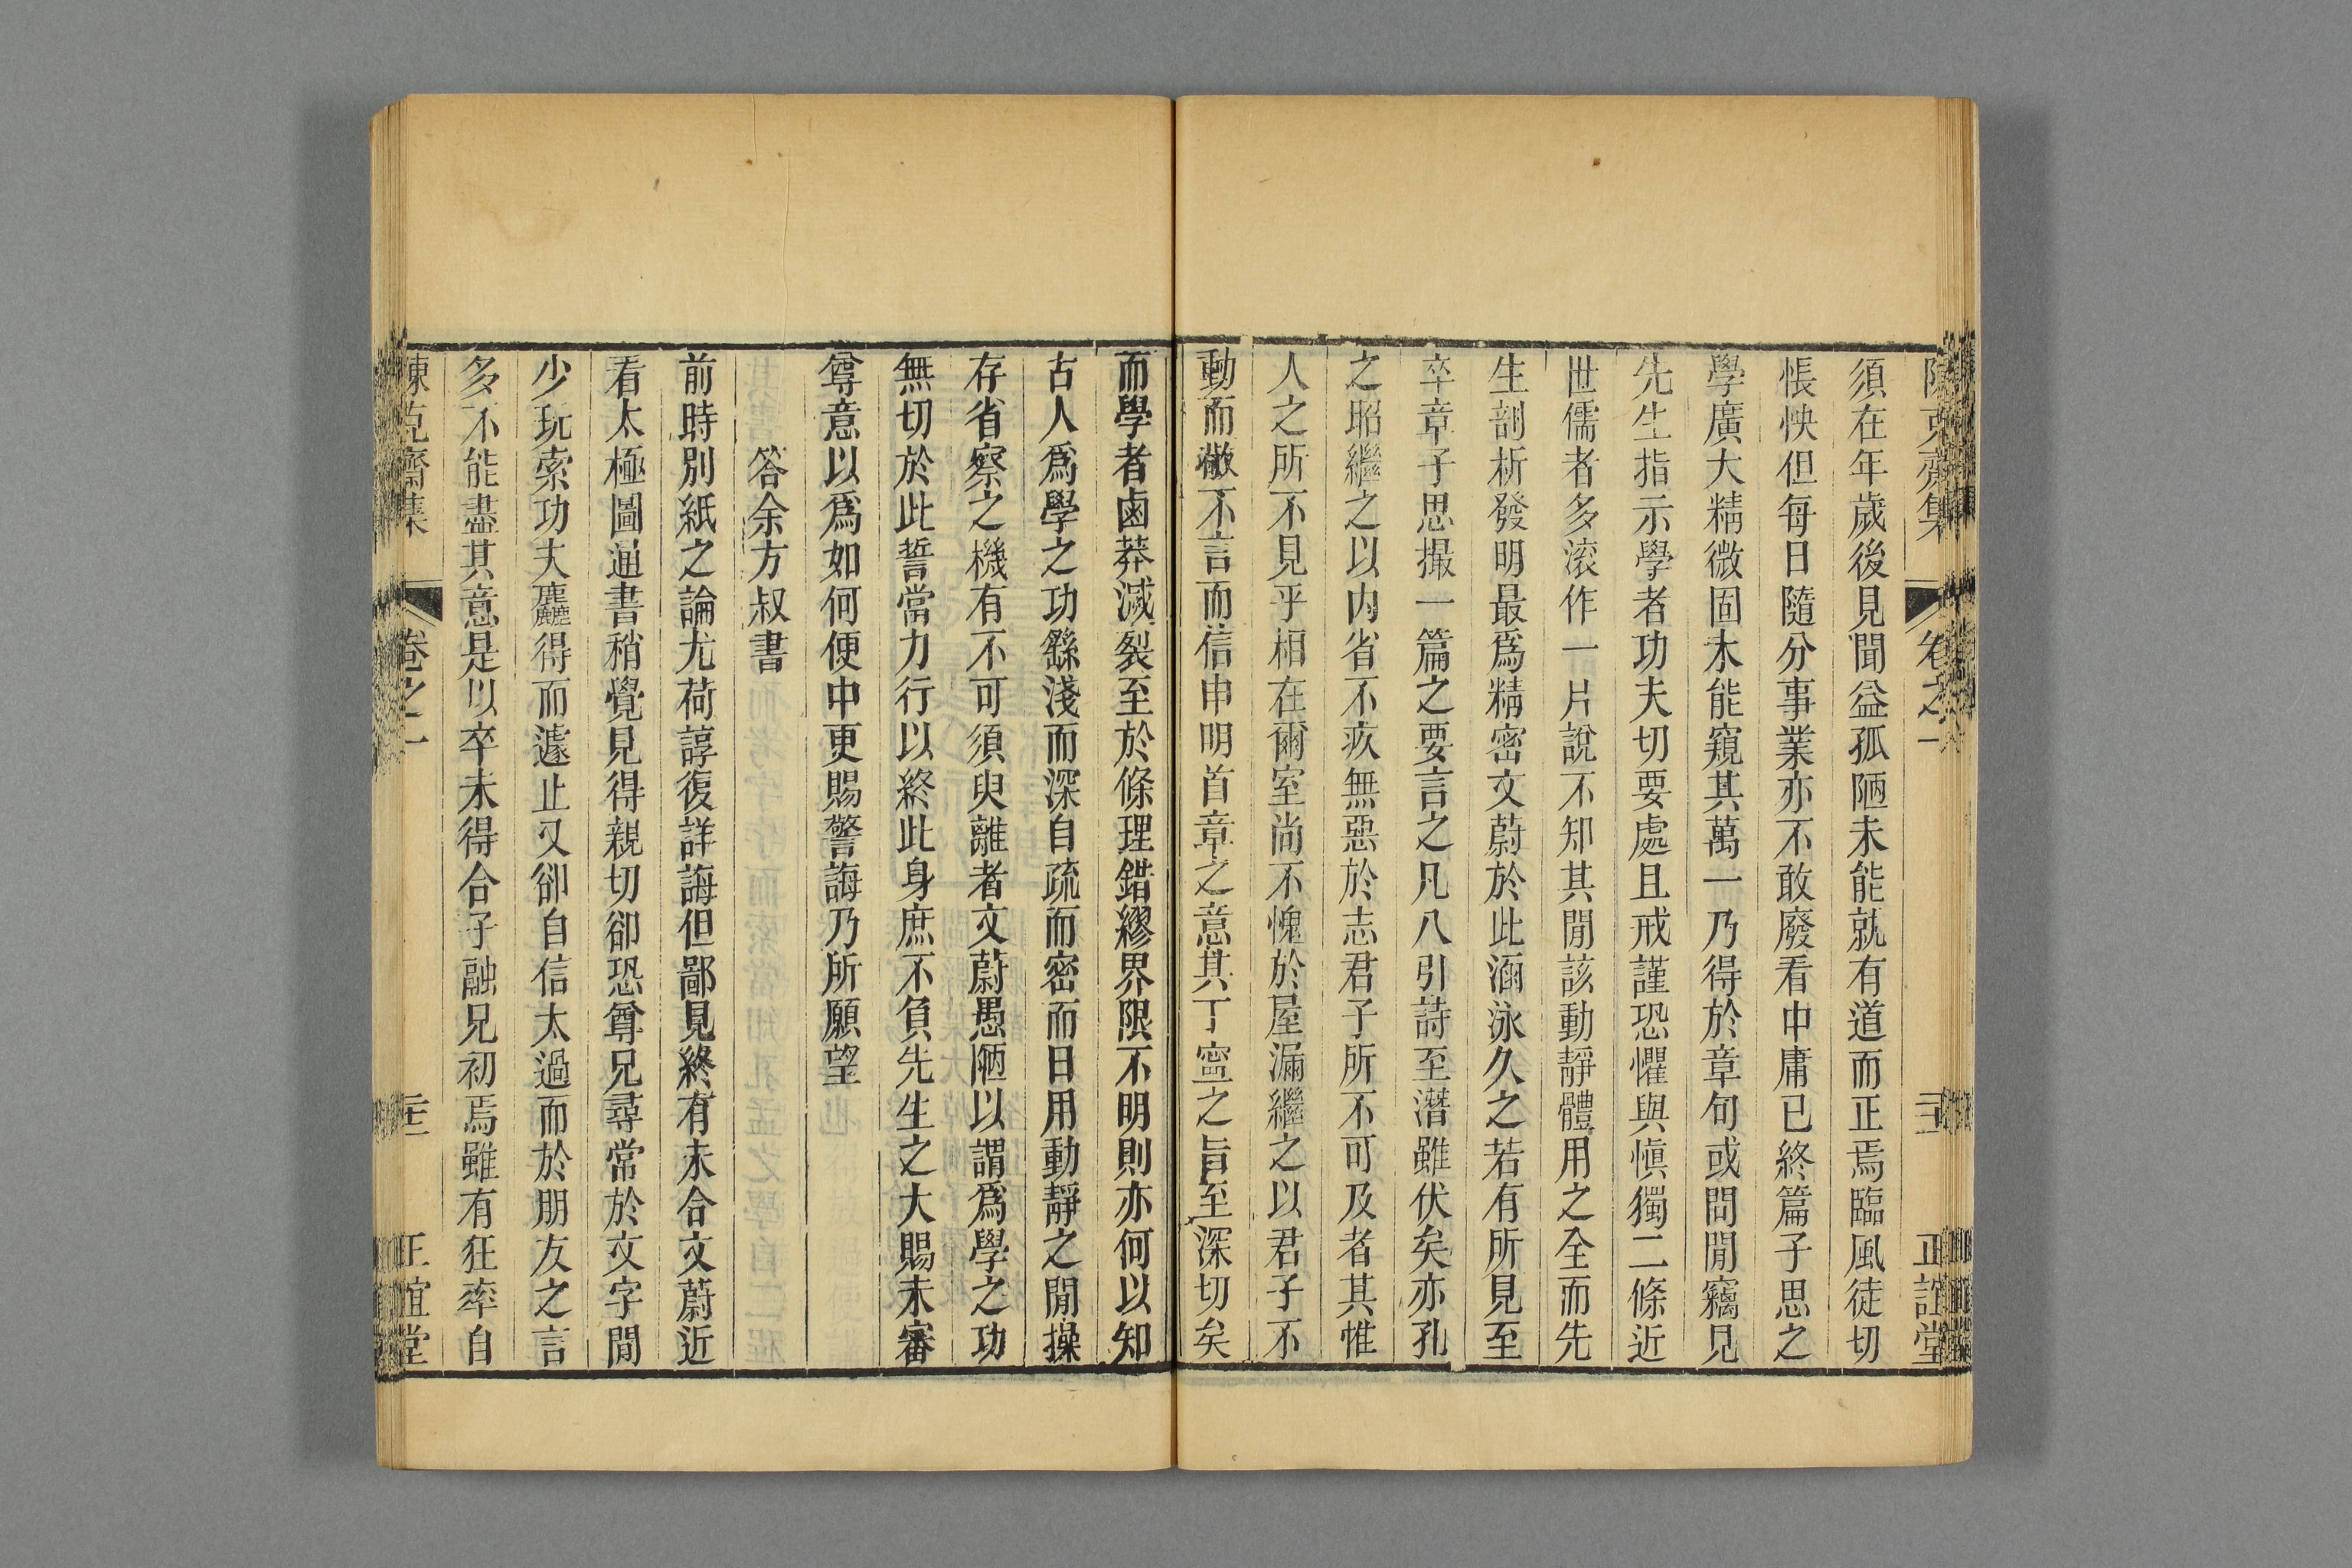 陳克齋集 卷之一 二十一 正誼堂
須在年歲後見聞益孤陋未能就有道而正焉臨風徒切
悵怏但每日隨分事業亦不敢廢看中庸已終篇子思之
學廣大精微固未能窺其萬一乃得於章句或問閒竊見
先生指示學者功夫切要處且戒謹恐懼與愼獨二條近
世儒者多滚作一片說不知其閒該動靜體用之全而先
生剖析發明最爲精密文蔚於此涵泳久之若有所見至
卒章子思撮一篇之要言之凡八引詩至潛雖伏矣亦孔
之昭繼之以内省不疚無惡於志君子所不可及者其惟
人之所不見乎相在爾室尚不愧於屋漏繼之以君子不
動而敬不言而信申明首章之意其丁寧之旨至深切矣
而學者鹵莽滅裂至於條理錯繆界限不明則亦何以知
古人爲學之功繇淺而深自疏而密而日用動靜之閒操
存省察之機有不可須臾離者文蔚愚陋以謂爲學之功
無切於此誓當力行以終此身庶不負先生之大賜未審
尊意以爲如何便中更賜警誨乃所願望
答余方叔書
前時別紙之論尤荷諄復詳誨但鄙見終有未合文蔚近
看太極圖通書稍覺見得親切卻恐尊兄尋常於文字閒
少玩索功夫麤得而遽止又卻自信太過而於朋友之言
多不能盡其意是以卒未得合子融兄初焉雖有狂率自
陳克齋集 卷之一 正誼堂